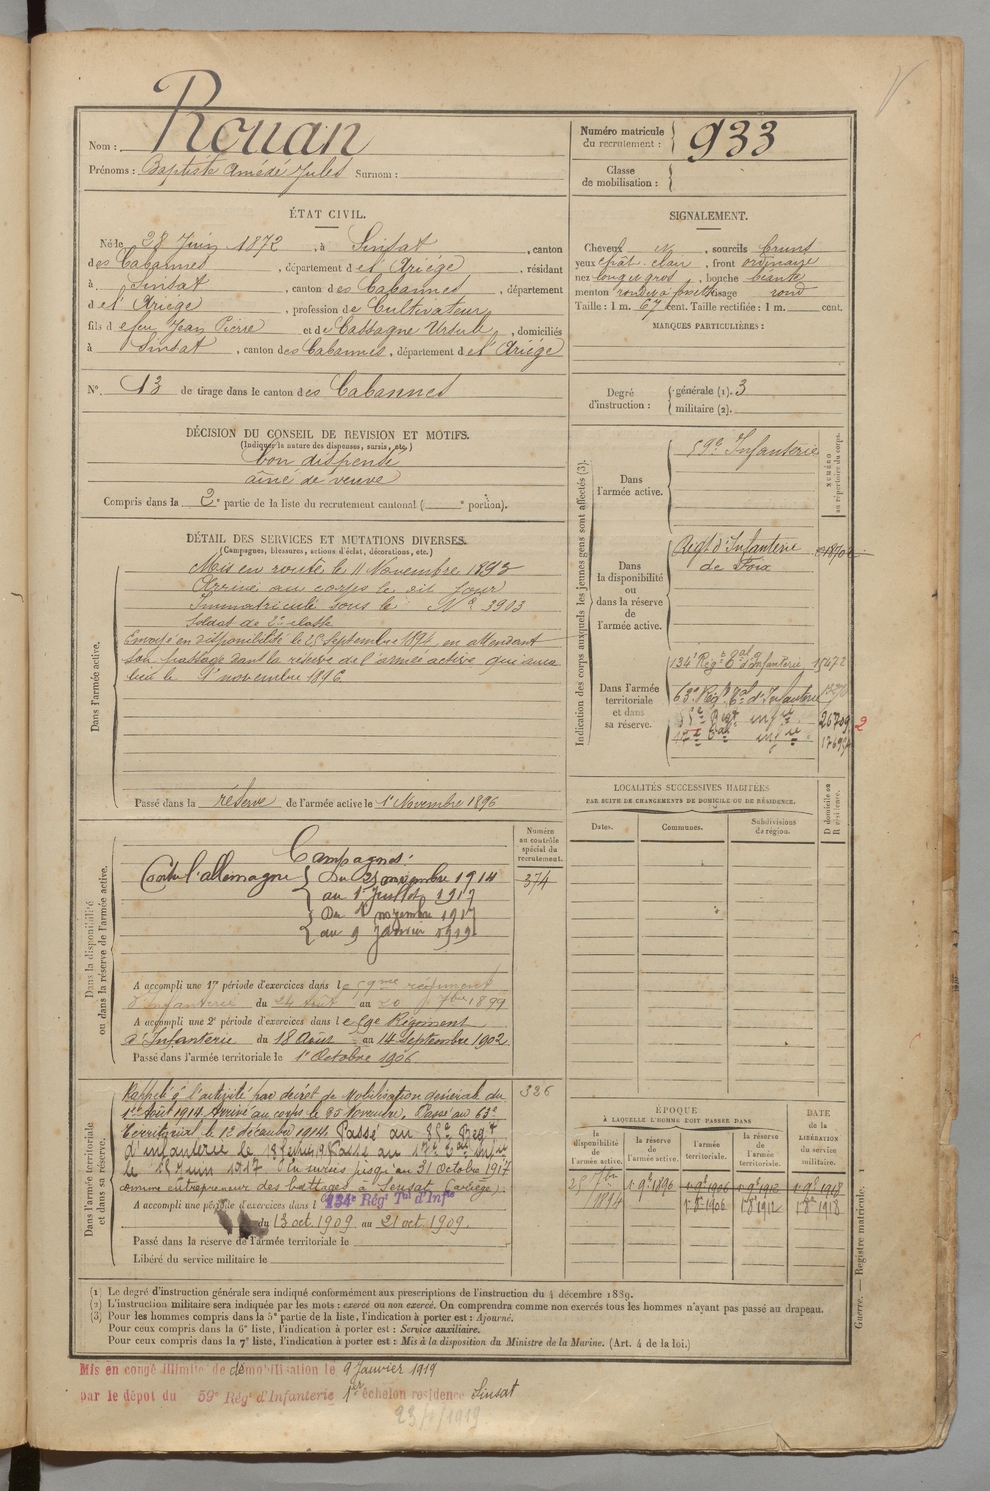 Nom : Rouan
Prénoms : Baptiste Amédé Jules Surnom :
Numéro matricule du recrutement : 933
Classe de mobilisation :
ÉTAT CIVIL.
Né le 28 Juin 1872, à Sinsat, canton
des Cabannes, département de l'Ariège, résidant
à Sinsat, canton des Cabannes, département
de l'Ariège, profession de Cultivateur
fils de feu Jean Pierre et de Cassagne Ursule, domiciliés
à Sinsat, canton des Cabannes, département de l'Ariège
N° 13 de tirage dans le canton des Cabannes
SIGNALEMENT.
Cheveux N, sourcils bruns
yeux clair, front ordinaire
nez long et gros, bouche béante
menton rond à fossette visage rond
Taille : 1 m. 67 cent. Taille rectifiée : 1 m. cent.
MARQUES PARTICULIÈRES :
Degré d'instruction : générale (1). 3
militaire (2).
DÉCISION DU CONSEIL DE REVISION ET MOTIFS.
(Indiquer la nature des dispenses, sursis, etc.)
bon dispensé
aîné de veuve
Compris dans la 2e partie de la liste du recrutement cantonal ( e portion).
DÉTAIL DES SERVICES ET MUTATIONS DIVERSES.
(Campagnes, blessures, actions d'éclat, décorations, etc.)
Dans l'armée active.
Mis en route le 11 Novembre 1893
Arrivé au corps le dit jour
Immatriculé sous le N° 3903
Soldat de 2e classe
Envoyé en disponibilité le 25 Septembre 1894 en attendant
son passage dans la réserve de l'armée active qui aura
lieu le 1er novembre 1896
Passé dans la réserve de l'armée active le 1er Novembre 1896
Indication des corps auxquels les jeunes gens sont affectés (3).
NUMÉRO au répertoire du corps.
Dans l'armée active.
59e Infanterie
Dans la disponibilité ou dans la réserve de l'armée active.
Régt d'Infanterie
de Foix
Dans l'armée territoriale et dans sa réserve.
134e Régt d'Infanterie 15472
63e Régt d'Infanterie
85e Regt infie 26709 2
17e Bat infie
LOCALITÉS SUCCESSIVES HABITÉES
PAR SUITE DE CHANGEMENTS DE DOMICILE OU DE RÉSIDENCE.
Dates. Communes. Subdivisions de région. D domicile ou R résidence.
Dans la disponibilité ou dans la réserve de l'armée active.
Numéro au contrôle spécial du recrutement.
374
Campagnes :
Contre l'allemagne Du 25 novembre 1914
au 1er Juillet 1917
Du 1er novembre 1917
au 9 Janvier 1919
A accompli une 1re période d'exercices dans le 59me régiment
d'Infanterie du 24 Août au 20 7bre 1899
A accompli une 2e période d'exercices dans le 59e Régiment
d'Infanterie du 18 Août au 14 Septembre 1902.
Passé dans l'armée territoriale le 1er Octobre 1906
Dans l'armée territoriale et dans sa réserve.
326
Rappelé à l'activité par décret de Mobilisation générale du
1er Août 1914. Arrivé au corps le 25 Novembre. Passé au 63e
Territorial le 12 décembre 1914. Passé au 85e Regt
d'infanterie le 18 février. Passé au 17e Bat infie
le 15 Juin 1917. En sursis jusqu'au 31 Octobre 1917
comme entrepreneur des battages à Sensat (ariège).
A accompli une période d'exercices dans le 134e Régt Tal d'Infie
du 13 oct. 1909 au 21 oct. 1909.
Passé dans la réserve de l'armée territoriale le
Libéré du service militaire le
ÉPOQUE
À LAQUELLE L'HOMME DOIT PASSER DANS
DATE de la LIBÉRATION du service militaire.
la disponibilité de l'armée active. la réserve de l'armée active. l'armée territoriale. la réserve de l'armée territoriale.
25 7bre 1894 1er 9e 1896 1er 9e 1906 1er 9e 1912 1er 9e 1918
1er 8e 1906 1er 8e 1912 1er 8e 1918
Guerre. — Registre matricule. 1
(1) Le degré d'instruction générale sera indiqué conformément aux prescriptions de l'instruction du 4 décembre 1889.
(2) L'instruction militaire sera indiquée par les mots : exercé ou non exercé. On comprendra comme non exercés tous les hommes n'ayant pas passé au drapeau.
(3) Pour les hommes compris dans la 5e partie de la liste, l'indication à porter est : Ajourné.
Pour ceux compris dans la 6e liste, l'indication à porter est : Service auxiliaire.
Pour ceux compris dans la 7e liste, l'indication à porter est : Mis à la disposition du Ministre de la Marine. (Art. 4 de la loi.)
Mis en congé illimité de démobilisation le 9 Janvier 1919
par le dépot du 59e Régt d'Infanterie 1er échelon residence Sinsat
23/1/1919